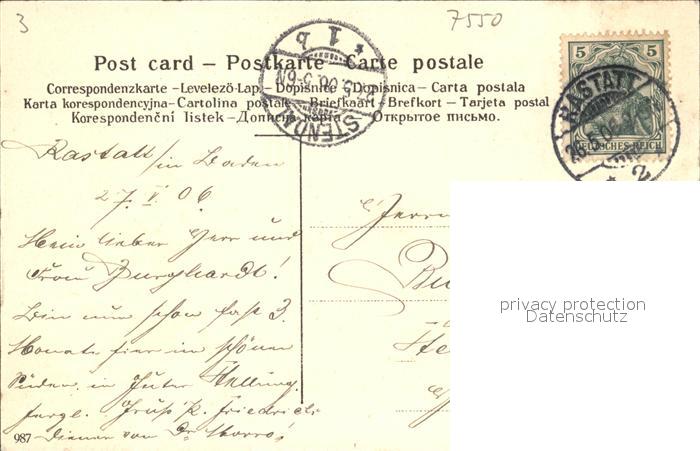 3
7550
Post card – Postkarte – Carte postale
Correspondenzkarte – Levelező-Lap – Dopisnice – Dopisnica – Carta postala
Karta korespondencyjna – Cartolina postale – Briefkaart – Brefkort – Tarjeta postal
Korespondenční listek – Дописна карта – Открытое письмо.
STENDAL
1 b
5 5
RASTATT
DEUTSCHES REICH
Rastatt in Baden
27. V. 06.
Mein lieber Herr und
Frau Burghardt!
Bin nun schon fast 3
Monate hier im schönen
Süden in guter Stellung.
Herzl. Gruß Friedrich
Diener von Dr
987
Herrn
Bu
privacy protection
Datenschutz